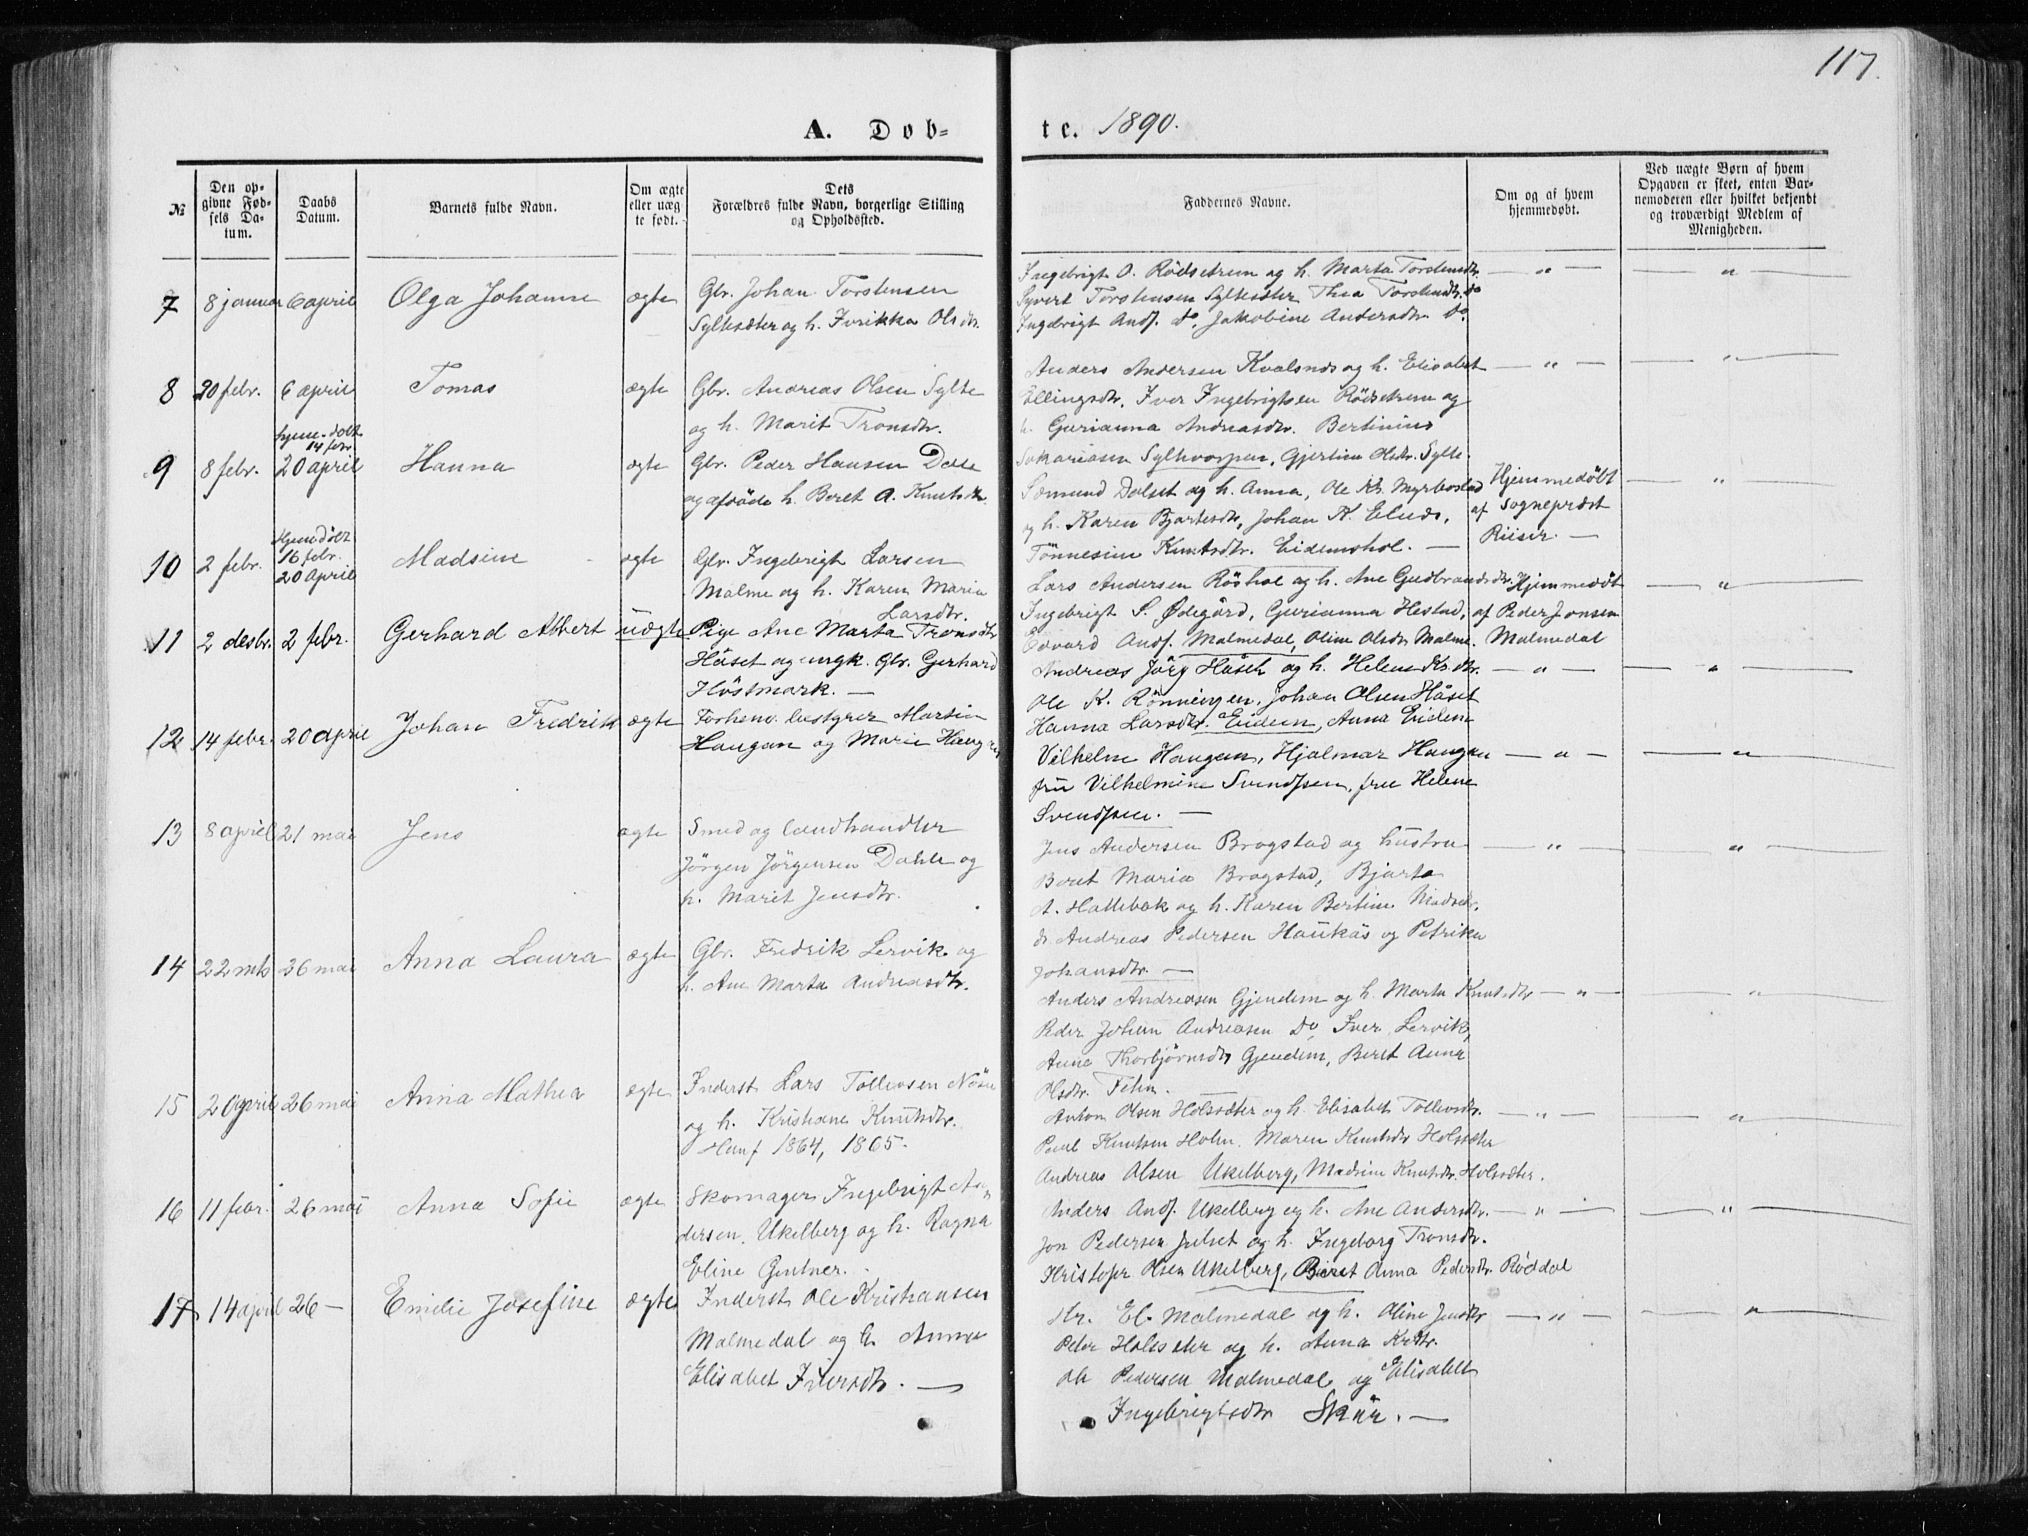 117.
A. Dob-
te. 1890.
№
Den op-
givne Fød-
sels Da-
tum.
Daabs
Datum.
Barnets fulde Navn.
Om ægte
eller uæg-
te født.
Dets
Forældres fulde Navn, borgerlige Stilling
og Opholdssted.
Faddernes Navne.
Om og af hvem
hjemmedøbt.
Ved uægte Børn af hvem
Opgaven er skeet, enten Bar-
nemoderen eller hvilket bekjendt
og troværdigt Medlem af
Menigheden.
7
8 januar
6 april
Olga Johanne
ægte
Gbr. Johan Torstensen
Syltesæter og h. Fredrikka Olsdtr.
Ingebrigt O. Rödsetrem og h. Marta Torstensdtr.
Syvert Torstensen Syltesæter Thea Torstensdtr. do
Ingebrigt Andf. do. Jakobine Andersdtr. do.
— " —
— " —
8
20 febr.
6 april
Tomas
ægte
Gbr. Andreas Olsen Sylte
og h. Marit Tronsdtr.
Anders Andersen Kvalsnes og h. Elisabet
Ellingsdtr. Iver Ingebrigtsen Rödsetrem og
h. Gurianna Andreasdtr. Bertinius
Sakariasen Sylte, Gjertine Olsdtr. Sylte.
— " —
— " —
9
8 febr.
hjemmedöbt
14 febr.
20 april
Hanna
ægte
Gbr. Peder Hansen Dalle
og afdöde h. Beret A. Knutsdtr.
Sæmund Dalset og h. Anna, Ole Kr. Myrbostad
og h. Karen Bjartesdtr, Johan K. Elnes,
Tönnesine Knutsdtr. Eidemshol. —
Hjemmedöbt
af Sognepræst
Riiser. —
— " —
10
2 febr.
Hjemdöbt
16 febr.
20 april
Madsine
ægte
Gbr. Ingebrigt Larsen
Malme og h. Karen Maria
Larsdtr.
Lars Andersen Röshol og h. Ane Gudbrandsdtr.
Ingebrigt S. Ødegård, Gurianna Hestad,
Edvard Andf. Malmedal, Oline Olsdtr Malme.
Hjemmedöbt
af Peder Jonsen
Malmedal
— " —
11
2 desbr.
2 febr.
Gerhard Albert
uægte
Pige Ane Marta Tronsdtr
Håset og ungk. Gbr. Gerhard
Höstmark. —
Andreas Jörg Håset og h. Helene Kr.dtr.
Ole K. Rönningen, Johan Olsen Håset
Hanna Larsdtr. Eidem, Anna Eidem
— " —
— " —
12
14 febr.
20 april
Johan Fredrik
ægte
Forhenv. bestyrer Martin
Haugan og Marie Haugan
Vilhelm Haugan, Hjalmar Haugan
fru Vilhelmine Svendsen, fru Helene
Svendsen. —
— " —
— " —
13
8 april
21 mai
Jens
ægte
Smed og landhandler
Jörgen Jörgensen Dahle og
h. Marit Jensdtr.
Jens Andersen Brogstad og hustru
Beret Maria Brogstad, Bjarte
A. Hallebak og h. Karen Bertine Madsdtr.
Andreas Pedersen Haukås og Petrika
Johansdtr. —
— " —
— " —
14
22 mts
26 mai
Anna Laura
ægte
Gbr. Fredrik Lervik og
h. Ane Marta Andreasdtr.
Anders Andreasen Gjendem og h. Marta Knutsdtr
Peder Johan Andreasen Do, Iver Lervik,
Anne Thorbjörnsdtr Gjendem, Beret Anna
Olsdtr.
— " —
— " —
15
2 April
26 mai
Anna Mathea
ægte
Inderst Lars Tollevsen
og h. Kristiane Knutsdtr.
1864, 1865.
Anton Olsen Holsæter og h. Elisabet Tollevsdtr.
Paul Knutsen Holm. Maren Knutsdtr Holsæter
Andreas Olsen Ukelberg, Madsine Knutsdtr. Holsæter.
— " —
— " —
16
11 febr.
26 mai
Anna Sofie
ægte
Skomager Ingebrigt An-
dersen, Ukelberg og h. Ragna
Eline Gentner.
Anders Andf. Ukelberg og h. Ane Andersdtr.
Jon Pedersen Julset og h. Ingeborg Tronsdtr.
Kristofer Olsen Ukelberg, Beret Anna Pedersdtr. Röddal
— " —
— " —
17
14 april
26 —
Emilie Josefine
ægte
Inderst Ole Kristiansen
Malmedal og h. Anne
Elisabet Iversdtr. —
Kr. El. Malmedal og h. Oline Jensdtr
Peter Holsæter og h. Anna Kr.dtr.
Ole Pedersen Malmedal og Elisabet
Ingebrigtsdtr Skår. —
— " —
— " —